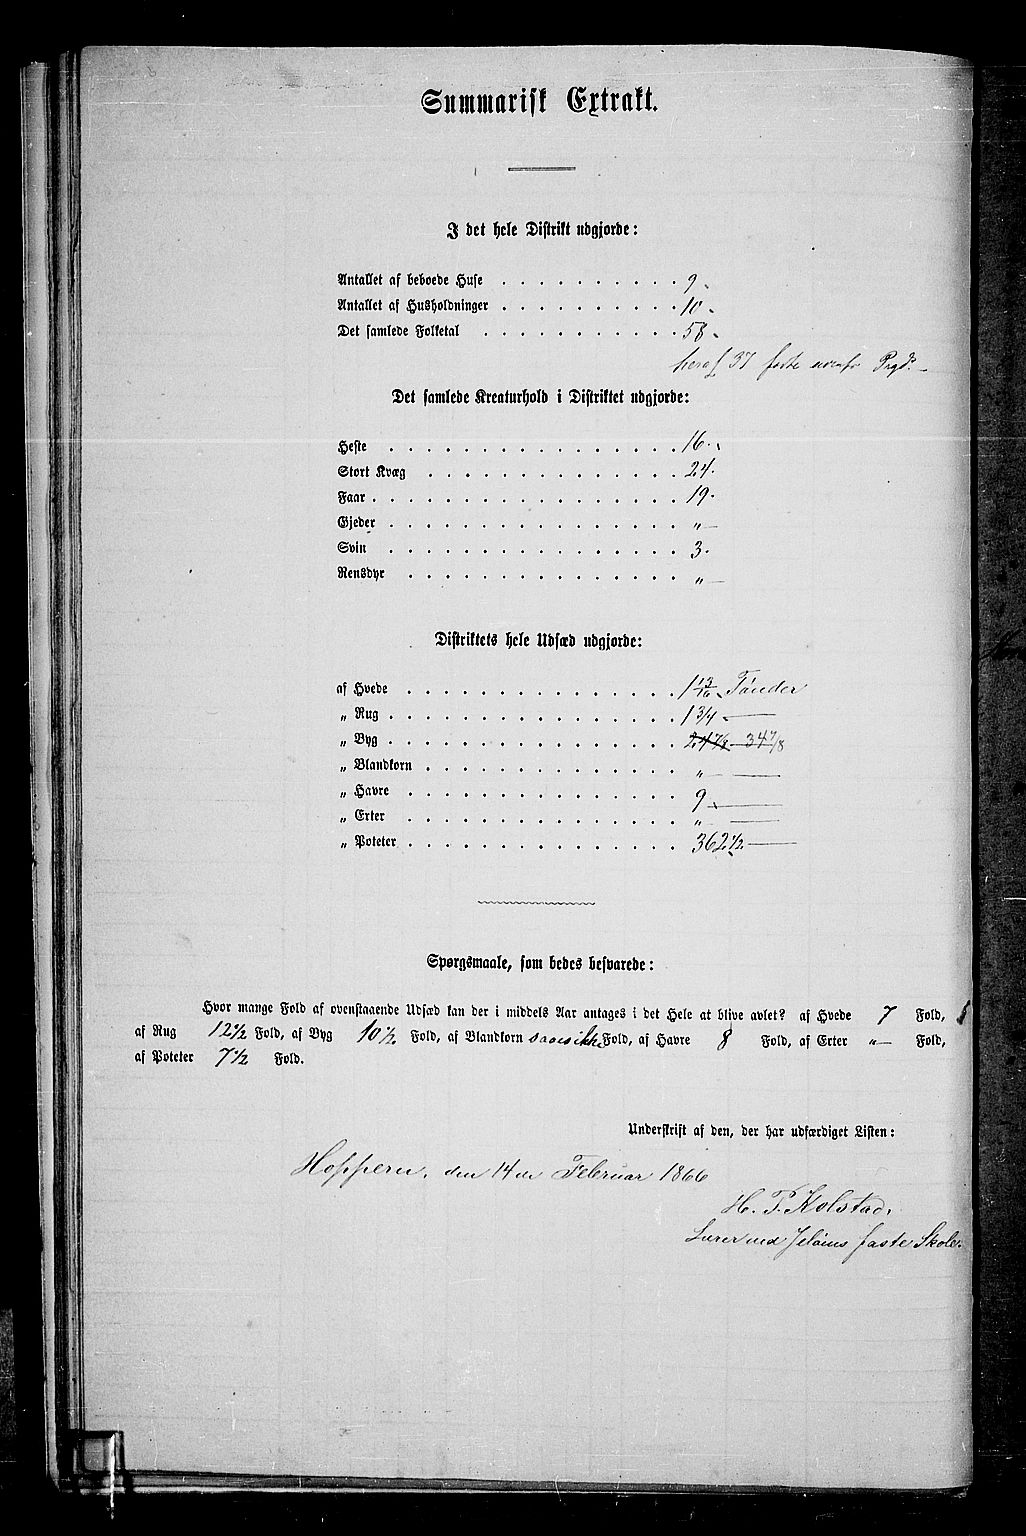 Summarisk Extrakt.
I det hele Distrikt udgjorde:
Antallet af beboede Huse . . . . . . . . . . 9
Antallet af Husholdninger . . . . . . . . . . 10
Det samlede Folketal . . . . . . . . . . . 58
heraf 37 fødte
Det samlede Kreaturhold i Distriktet udgjorde:
Heste . . . . . . . . . . . . . . . . 16.
Stort Kvæg . . . . . . . . . . . . . . 24.
Faar . . . . . . . . . . . . . . . . . 19.
Gjeder . . . . . . . . . . . . . . . . „—
Svin . . . . . . . . . . . . . . . . 3.
Rensdyr . . . . . . . . . . . . . . . „—
Distriktets hele Udsæd udgjorde:
af Hvede . . . . . . . . . . . . . . . 1 13/16 Tønder
„ Rug . . . . . . . . . . . . . . . . 1 3/4 —
„ Byg . . . . . . . . . . . . . . . . 24 7/8 — 34 7/8
„ Blandkorn . . . . . . . . . . . . . . „ —
„ Havre . . . . . . . . . . . . . . . 9 —
„ Erter . . . . . . . . . . . . . . . „ —
„ Poteter . . . . . . . . . . . . . . . 362 1/2 —
Spørgsmaale, som bedes besvarede:
Hvor mange Fold af ovenstaaende Udsæd kan der i middels Aar antages i det Hele at blive avlet? af Hvede 7 Fold,
af Rug 12 1/2 Fold, af Byg 10 1/2 Fold, af Blandkorn saaes ikke Fold, af Havre 8 Fold, af Erter „— Fold,
af Poteter 7 1/2 Fold.
Underskrift af den, der har udfærdiget Listen:
Hoppern, den 14de Februar 1866
H. P. Kolstad,
Lærer ved Jeløens faste Skole.